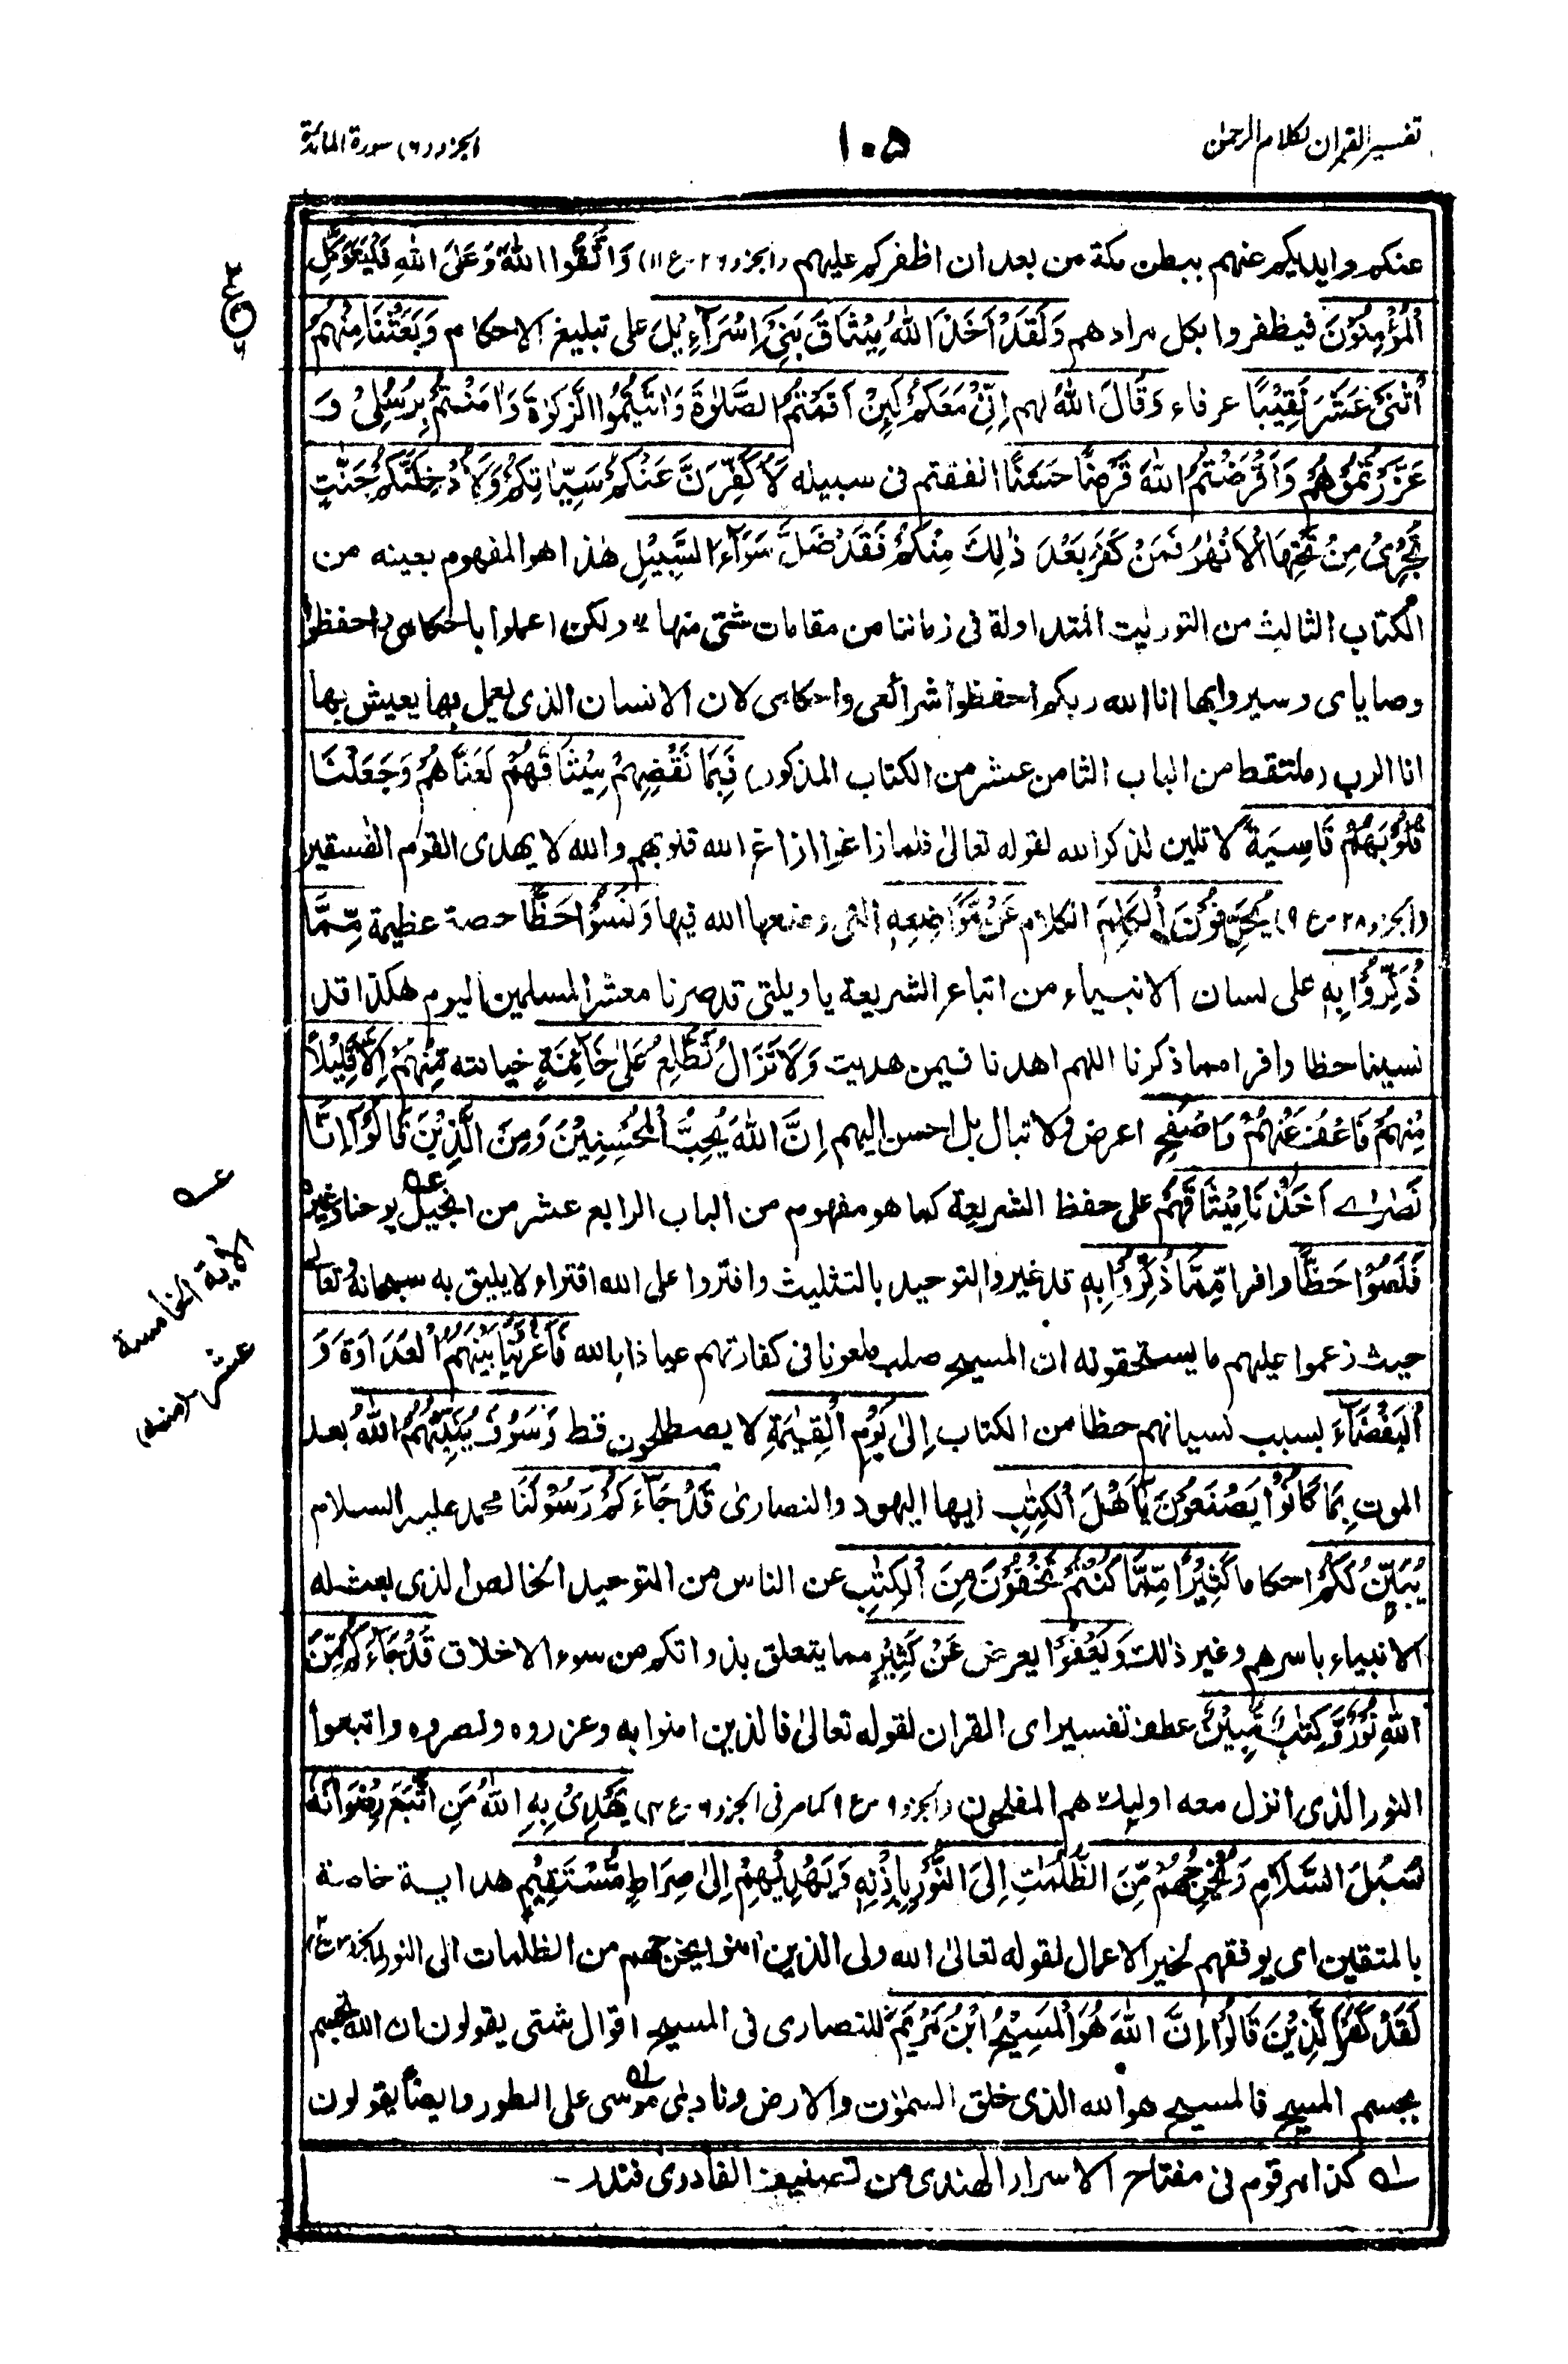 تفسير القران لكلام الرحمن
١٠٥
الجزء (٦) سورة المائدة
عنكم وايديكم عنهم ببطن مكة من بعد ان اظفركم عليهم (الجزء ٢٦-ع ١١) وَاتَّقُوا اللهَ وَعَلَى اللهِ فَلْيَتَوَكَّلِ
الْمُؤْمِنُوْنَ فيظفروا بكل مرادهم وَلَقَدْ اَخَذَ اللهُ مِيْثَاقَ بَنِيْ اِسْرَآءِيْلَ على تبليغ الاحكام وَبَعَثْنَا مِنْهُمُ
اثْنَيْ عَشَرَ نَقِيْبًا عرفاء وَقَالَ اللهُ لهم اِنِّيْ مَعَكُمْ لَىِٕنْ اَقَمْتُمُ الصَّلٰوةَ وَاٰتَيْتُمُ الزَّكٰوةَ وَاٰمَنْتُمْ بِرُسُلِيْ وَ
عَزَّرْتُمُوْهُمْ وَاَقْرَضْتُمُ اللهَ قَرْضًا حَسَنًا انفقتم فى سبيله لَاُكَفِّرَنَّ عَنْكُمْ سَيِّاٰتِكُمْ وَلَاُدْخِلَنَّكُمْ جَنّٰتٍ
تَجْرِيْ مِنْ تَحْتِهَا الْاَنْهٰرُ فَمَنْ كَفَرَ بَعْدَ ذٰلِكَ مِنْكُمْ فَقَدْ ضَلَّ سَوَآءَ السَّبِيْلِ هٰذا هو المفهوم بعينه من
الكتاب الثالث من التوريٰت المتداولة فى زماننا من مقامات شتى منها ولكن اعملوا باحكامى واحفظوا
وصاياى وسيروا بها انا الله ربكم احفظوا شرائعى واحكامى لان الانسان الذى يعمل بها يعيش بها
انا الرب (ملتقط من الباب الثامن عشر من الكتاب المذكور) فَبِمَا نَقْضِهِمْ مِيْثَاقَهُمْ لَعَنّٰهُمْ وَجَعَلْنَا
قُلُوْبَهُمْ قَاسِيَةً لا تلين لذكر الله لقوله تعالىٰ فلما زاغوا ازاغ الله قلوبهم والله لا يهدى القوم الفسقين
(الجزء ٢٨-ع ٩) يُحَرِّفُوْنَ الْكَلِمَ الكلام عَنْ مَّوَاضِعِهٖ التى وضعها الله فيها وَنَسُوْا حَظًّا حصة عظيمة مِّمَّا
ذُكِّرُوْا بِهٖ على لسان الانبياء من اتباع الشريعة يا ويلتى قد صرنا معشر المسلمين اليوم هكذا قد
نسينا حظا وافرا مما ذكرنا اللهم اهدنا فيمن هديت وَلَا تَزَالُ تَطَّلِعُ عَلٰى خَآئِنَةٍ خيانته مِّنْهُمْ اِلَّا قَلِيْلًا
مِّنْهُمْ فَاعْفُ عَنْهُمْ وَاصْفَحْ اعرض ولا تبال بل احسن اليهم اِنَّ اللهَ يُحِبُّ الْمُحْسِنِيْنَ وَمِنَ الَّذِيْنَ قَالُوْٓا اِنَّا
نَصٰرٰى اَخَذْنَا مِيْثَاقَهُمْ على حفظ الشريعة كما هو مفهوم من الباب الرابع عشر من انجيل يوحنا وغيره
فَنَسُوْا حَظًّا وافرا مِّمَّا ذُكِّرُوْا بِهٖ قد غيروا التوحيد بالتثليث وافتروا على الله افتراء لا يليق به سبحانه وتعالى
حيث زعموا عليهم ما يستحقونه ان المسيح صلب ملعونا فى كفارتهم عياذا بالله فَاَغْرَيْنَا بَيْنَهُمُ الْعَدَاوَةَ وَ
الْبَغْضَآءَ بسبب نسيانهم حظا من الكتاب اِلٰى يَوْمِ الْقِيٰمَةِ لا يصطلحون قط وَسَوْفَ يُنَبِّئُهُمُ اللهُ بعد
الموت بِمَا كَانُوْا يَصْنَعُوْنَ يٰٓاَهْلَ الْكِتٰبِ ايها اليهود والنصارىٰ قَدْ جَآءَكُمْ رَسُوْلُنَا محمد عليه السلام
يُبَيِّنُ لَكُمْ احكاما كَثِيْرًا مِّمَّا كُنْتُمْ تُخْفُوْنَ مِنَ الْكِتٰبِ عن الناس من التوحيد الخالص الذى بعث له
الانبياء باسرهم وغير ذلك وَيَعْفُوْا يعرض عَنْ كَثِيْرٍ مما يتعلق بذواتكم من سوء الاخلاق قَدْ جَآءَكُمْ مِّنَ
اللهِ نُوْرٌ وَّكِتٰبٌ مُّبِيْنٌ عطف تفسير اى القران لقوله تعالىٰ فالذين امنوا به وعزروه ونصروه واتبعوا
النور الذى انزل معه اولئك هم المفلحون (الجزء ٩-ع ٩ كما مر فى الجزء ٦-ع ٣) يَّهْدِيْ بِهِ اللهُ مَنِ اتَّبَعَ رِضْوَانَهٗ
سُبُلَ السَّلَامِ وَيُخْرِجُهُمْ مِّنَ الظُّلُمٰتِ اِلَى النُّوْرِ بِاِذْنِهٖ وَيَهْدِيْهِمْ اِلٰى صِرَاطٍ مُّسْتَقِيْمٍ هداية خاصة
بالمتقين اى يوفقهم لخير الاعمال لقوله تعالىٰ الله ولى الذين امنوا يخرجهم من الظلمات الى النور
لَقَدْ كَفَرَ الَّذِيْنَ قَالُوْٓا اِنَّ اللهَ هُوَ الْمَسِيْحُ ابْنُ مَرْيَمَ للنصارى فى المسيح اقوال شتى يقولون ان الله تجسم
بجسم المسيح فالمسيح هو الله الذى خلق السمٰوٰت والارض ونادىٰ موسى على الطور وايضاً يقولون
له كذا مرقوم فى مفتاح الاسرار الهندى من تصنيف الفادرى فندر -
عــه
الاية الخامسة
عشر (منه)